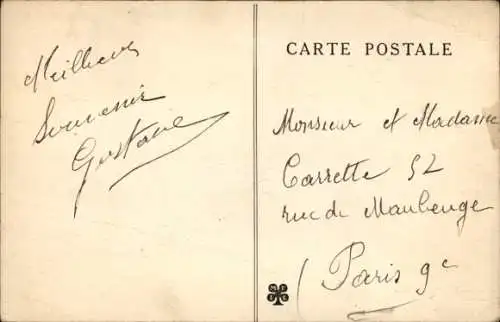 Meilleur
Souvenir
Gustave
CARTE POSTALE
Monsieur et Madame
Carrette 52
rue de Maubeuge
Paris 9e